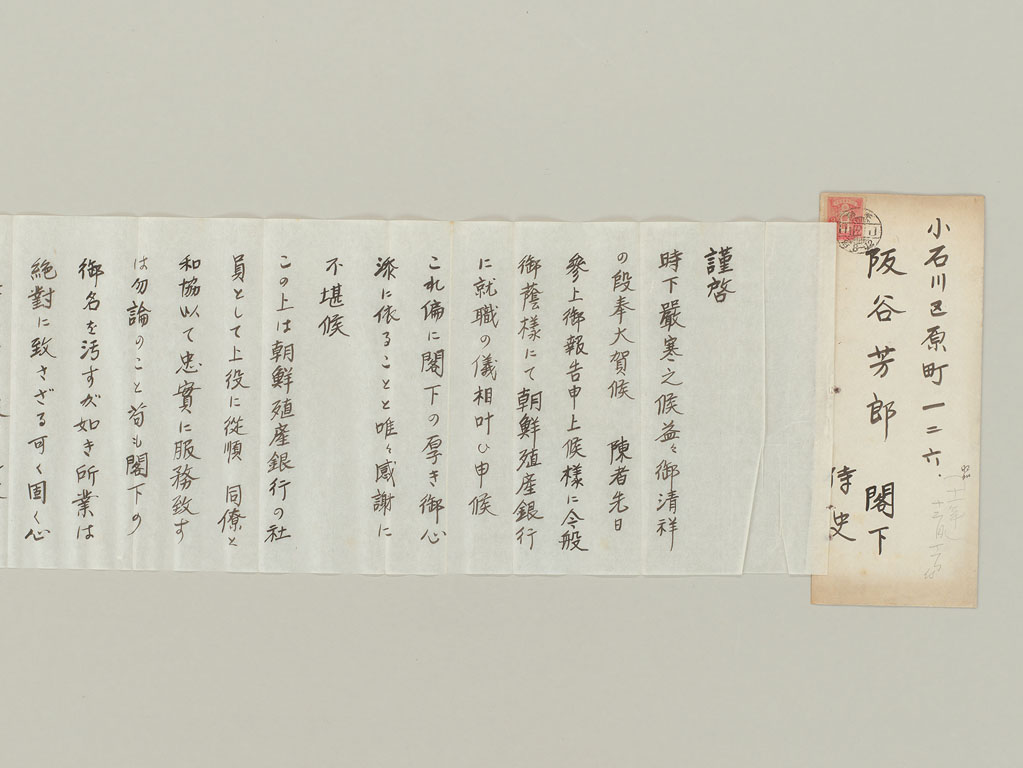 小石川区原町一二六、
阪谷芳郎 閣下
侍史
謹啓
時下嚴寒之候益々御清祥
の段奉大賀候 陳者先日
參上御報告申上候樣に今般
御蔭樣にて朝鮮殖産銀行
に就職の儀相叶ひ申候
これ偏に閣下の厚き御心
添に依ること唯々感謝に
不堪候
この上は朝鮮殖産銀行の社
員として上役に從順 同僚と
和協以て忠實に服務致す
は勿論のこと苟も閣下の
御名を汚すが如き所業は
絶對に致さざる可く固く心